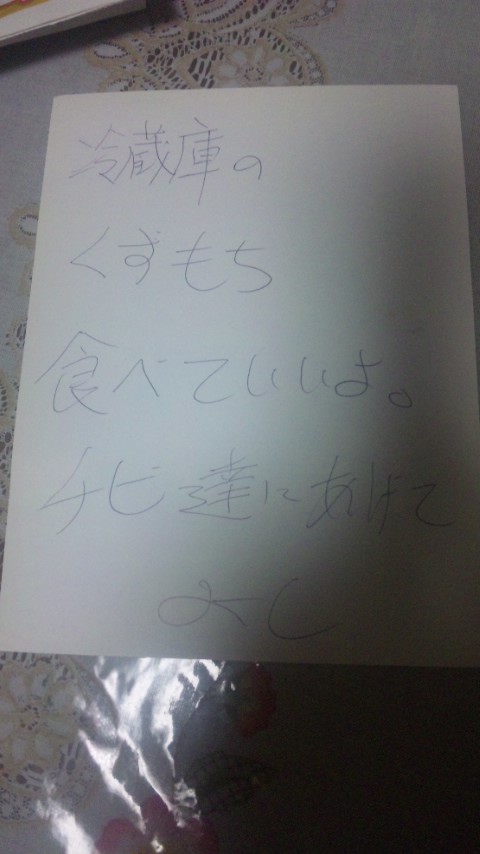 冷蔵庫の
くずもち
食べていいよ。
チビ達にあげて
よし